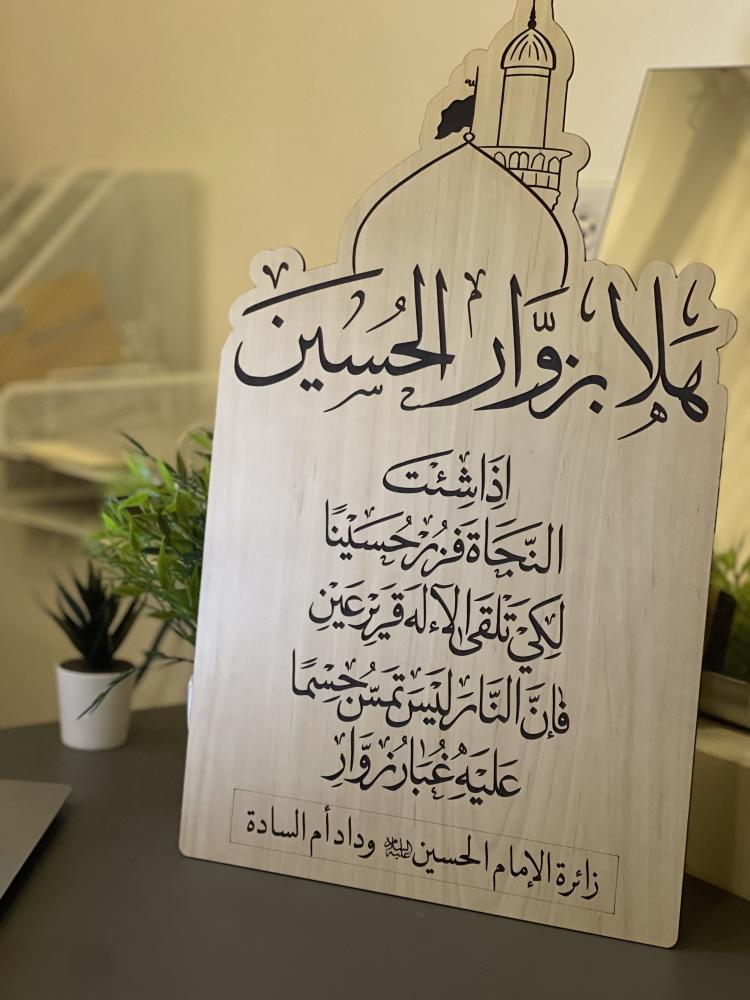 هلا بزوَّار الحسين
اِذَا شِئتَ
النَّجَاةَ فَزُرْ حُسَيْنًا
لِكَيْ تَلْقَى الاِلَهَ قَرِيرَ عَيْنِ
فَاِنَّ النَّارَ لَيْسَ تَمَسُّ جِسْمًا
عَلَيْهِ غُبَارُ زُوَّارِ
زائرة الإمام الحسين عليه السلام وداد أم السادة